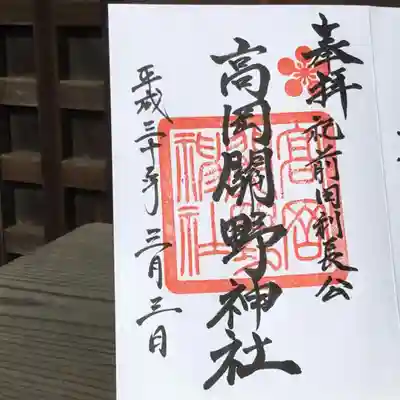 奉拝 祀前田利長公
高岡關野神社
平成三十年 三月三日
高岡關野神社